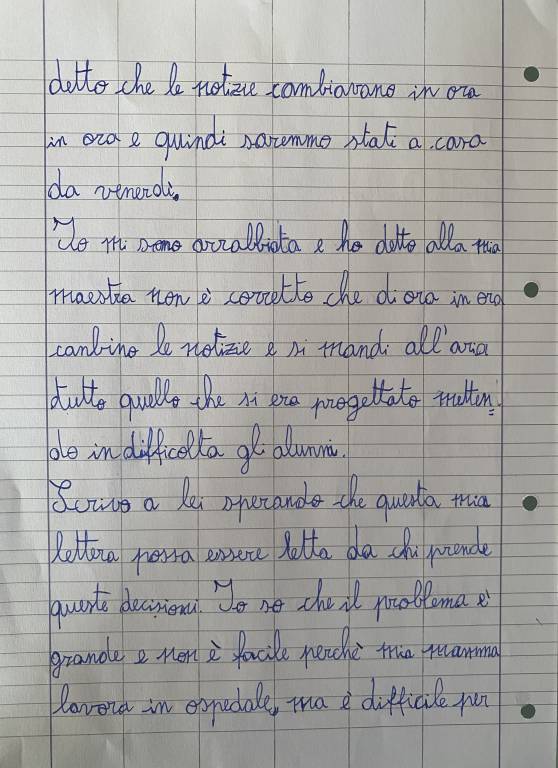 detto che le notizie cambiavano in ora
in ora e quindi saremmo stati a casa
da venerdì.
Io mi sono arrabbiata e ho detto alla mia
maestra non è corretto che di ora in ora
canbino le notizie e si mandi all'aria
tutto quello che si era progettato metten=
do in difficolta gli alunni.
Scrivo a lei sperando che questa mia
lettera possa essere letta da chi prende
queste decisioni. Io so che il problema è
grande e non è facile perchè mia mamma
lavora in ospedale, ma è difficile per